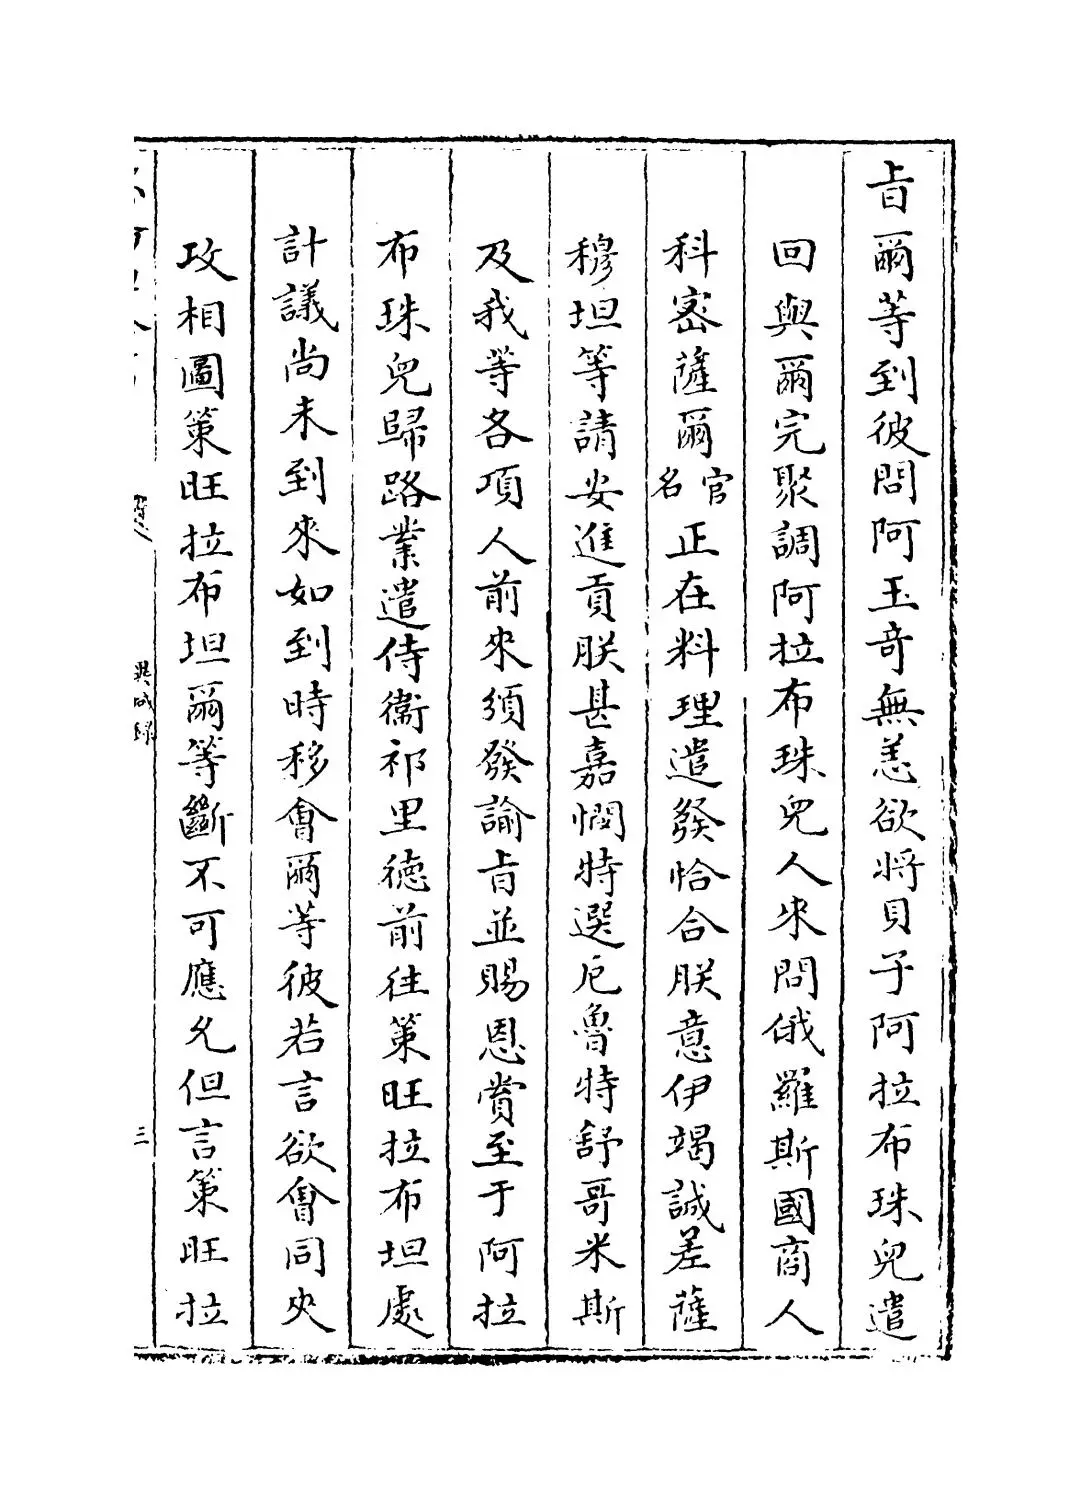 旨爾等到彼問阿玉竒無恙欲將貝子阿拉布珠兒遣
回與爾完聚調阿拉布珠兒人來問俄羅斯國商人
科密薩爾官名正在料理遣發恰合朕意伊竭誠差薩
穆坦等請安進貢朕甚嘉憫特選厄魯特舒哥米斯
及我等各項人前來須發諭旨並賜恩賞至于阿拉
布珠兒歸路業遣侍衞祁里德前往策旺拉布坦處
計議尚未到來如到時移會爾等彼若言欲會同夾
攻相圖策旺拉布坦爾等斷不可應允但言策旺拉
異域錄
三